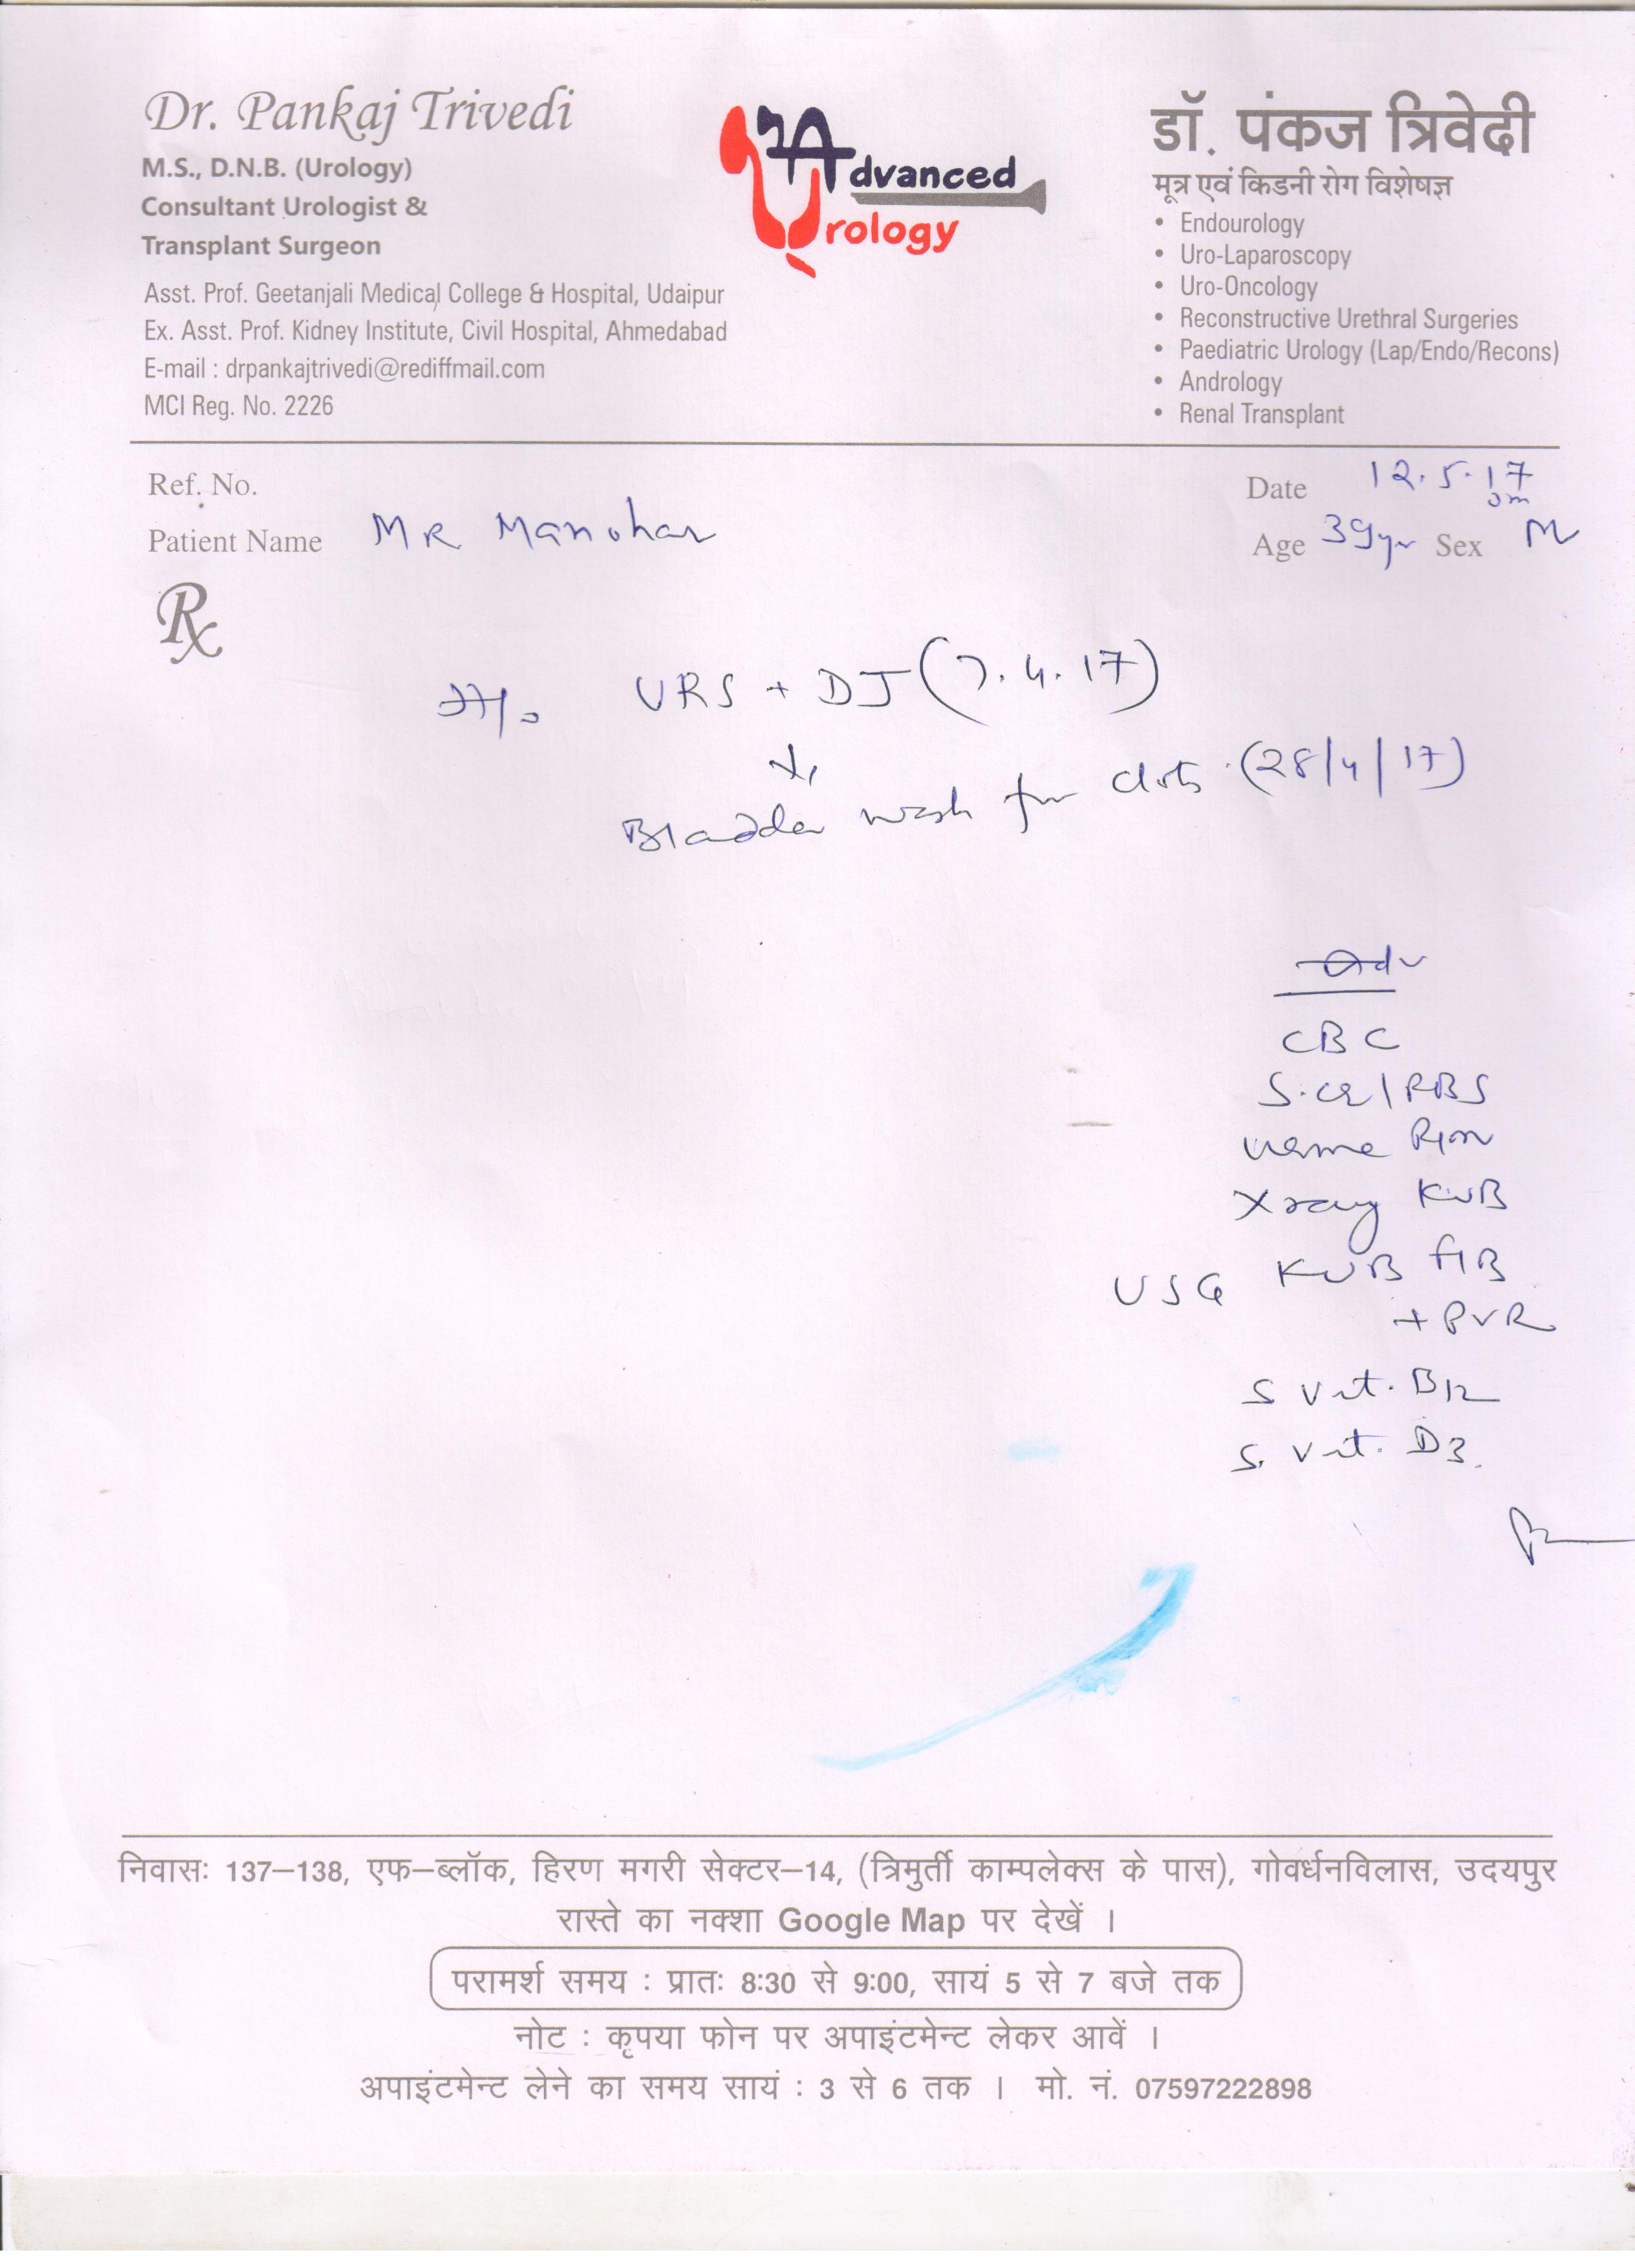 Dr. Pankaj Trivedi
M.S., D.N.B. (Urology)
Consultant Urologist &
Transplant Surgeon
Asst. Prof. Geetanjali Medical College & Hospital, Udaipur
Ex. Asst. Prof. Kidney Institute, Civil Hospital, Ahmedabad
E-mail : drpankajtrivedi@rediffmail.com
MCI Reg. No. 2226
Advanced
Urology
डॉ. पंकज त्रिवेदी
मूत्र एवं किडनी रोग विशेषज्ञ
• Endourology
• Uro-Laparoscopy
• Uro-Oncology
• Reconstructive Urethral Surgeries
• Paediatric Urology (Lap/Endo/Recons)
• Andrology
• Renal Transplant
Ref. No.
Date 12.5.17
Patient Name MR Manohar
Age 39yr Sex M
Rx
H/o URS + DJ (7.4.17)
↓
Bladder wash for clots (28/4/17)
Adv
CBC
S.cr/RBS
urine R/m
Xray KUB
USG KUB FIB
+ PVR
S Vit. B12
S. Vit. D3.
निवासः 137–138, एफ–ब्लॉक, हिरण मगरी सेक्टर–14, (त्रिमुर्ती काम्पलेक्स के पास), गोवर्धनविलास, उदयपुर
रास्ते का नक्शा Google Map पर देखें ।
परामर्श समय : प्रातः 8:30 से 9:00, सायं 5 से 7 बजे तक
नोट : कृपया फोन पर अपाइंटमेन्ट लेकर आवें ।
अपाइंटमेन्ट लेने का समय सायं : 3 से 6 तक । मो. नं. 07597222898